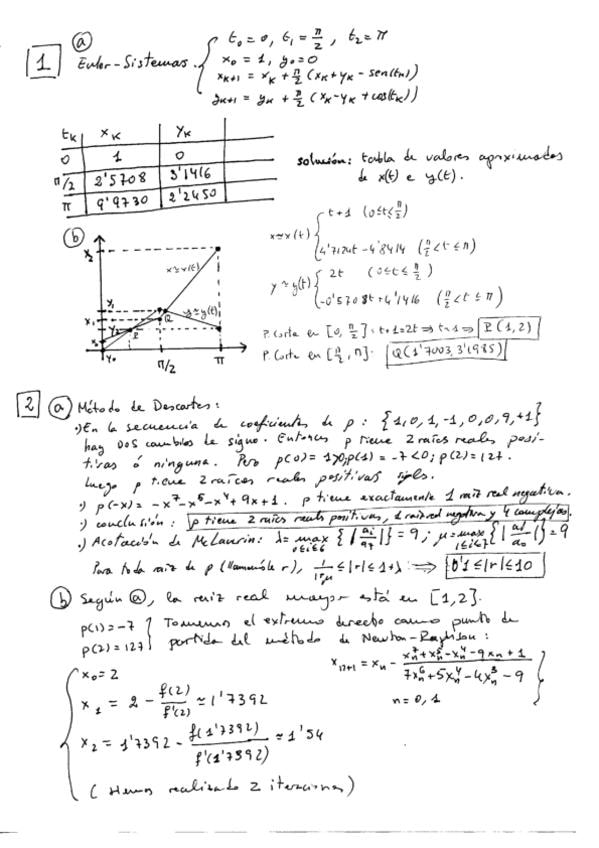 1 (a) Euler-Sistemas
t₀ = 0, t₁ = π/2, t₂ = π
x₀ = 1, y₀ = 0
x_{k+1} = x_k + π/2 (x_k + y_k - sen(t_k))
y_{k+1} = y_k + π/2 (x_k - y_k + cos(t_k))
t_k x_k y_k
0 1 0
π/2 2'5708 3'1416
π 9'9730 2'2450
solución: tabla de valores aproximados
de x(t) e y(t).
(b)
x₂
x≃x(t)
y≃y(t)
y₁
x₁
y₂
x₀
y₀
P
Q
π/2
π
x≃x(t) { t+1 (0≤t≤π/2)
4'7124t - 4'8414 (π/2<t≤π)
y≃y(t) { 2t (0≤t≤π/2)
-0'5708t + 4'1416 (π/2<t≤π)
P. Corte en [0, π/2]: t+1=2t ⇒ t=1 ⇒ P(1,2)
P. Corte en [π/2, π]: Q(1'7003, 3'1985)
2 (a) Método de Descartes:
·) En la secuencia de coeficientes de p: {1,0,1,-1,0,0,-9,+1}
hay DOS cambios de signo. Entonces p tiene 2 raíces reales posi-
tivas ó ninguna. Pero p(0)=1>0; p(1)=-7<0; p(2)=127.
Luego p tiene 2 raíces reales positivas
·) p(-x) = -x⁷-x⁵-x⁴+9x+1. p tiene exactamente 1 raíz real negativa.
·) conclusión: p tiene 2 raíces reales positivas, 1 raíz real negativa y 4 complejas.
·) Acotación de McLaurin: λ = max_{0≤i≤6} {|a_i/a_7|} = 9; μ = max_{1≤i≤7} {|a_i/a_0|} = 9
Para toda raíz de p (llamémosle r), 1/(1+μ) ≤ |r| ≤ 1+λ ⇒ 0'1 ≤ |r| ≤ 10
(b) Según (a), la raíz real mayor está en [1,2].
p(1) = -7
p(2) = 127
Tomemos el extremo derecho como punto de
partida del método de Newton-Raphson:
x_{n+1} = x_n - (x_n⁷ + x_n⁵ - x_n⁴ - 9x_n + 1)/(7x_n⁶ + 5x_n⁴ - 4x_n³ - 9)
n = 0, 1
x₀ = 2
x₁ = 2 - f(2)/f'(2) ≃ 1'7392
x₂ = 1'7392 - f(1'7392)/f'(1'7392) ≃ 1'54
(Hemos realizado 2 iteraciones)